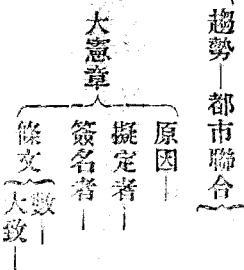 趨勢—都市聯合
大憲章
原因—
擬定者—
簽名者—
條文
數—
大致—